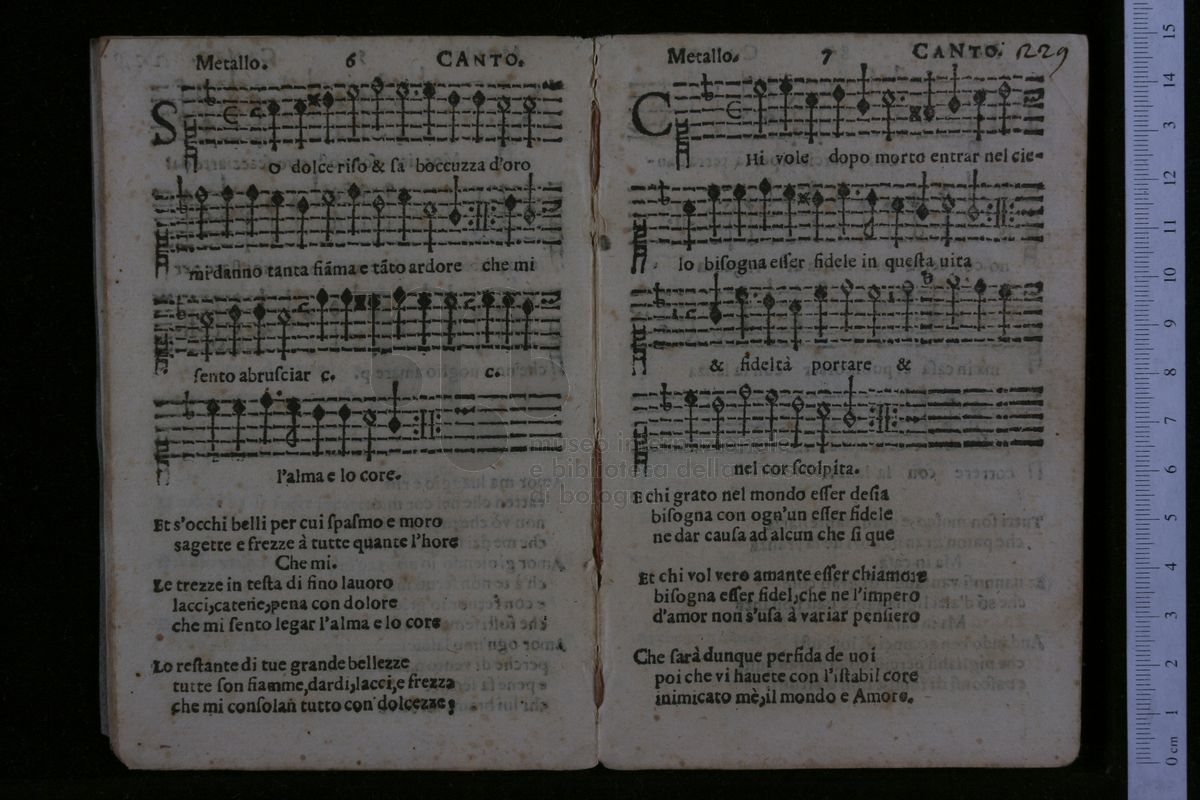 Metallo. 6 CANTO.
SO dolce riſo & ſa boccuzza d'oro
mi danno tanta fiãma e tãto ardore che mi
ſento abruſciar c. c.
l'alma e lo core.
Et s'occhi belli per cui ſpaſmo e moro
sagette e frezze à tutte quante l'hore
Che mi.
Le trezze in teſta di fino lauoro
lacci,catene,pena con dolore
che mi ſento legar l'alma e lo core
Lo reſtante di tue grande bellezze
tutte ſon fiamme,dardi,lacci,e frezza
che mi conſolan tutto con dolcezze;
Metallo. 7 CANTO. 229
CHi vole dopo morto entrar nel cie-
lo biſogna eſſer fidele in queſta uita
& fideltà portare &
nel cor ſcolpita.
E chi grato nel mondo eſſer deſia
biſogna con ogn'un eſſer fidele
ne dar cauſa ad alcun che ſi que
Et chi vol vero amante eſſer chiamore
biſogna eſſer fidel,che ne l'impero
d'amor non s'uſa à variar penſiero
Che ſarà dunque perfida de uoi
poi che vi hauete con l'iſtabil core
inimicato mè,il mondo e Amore.
museo internazionale
e biblioteca della
di bologna
0 cm 1 2 3 4 5 6 7 8 9 10 11 12 3 14 15